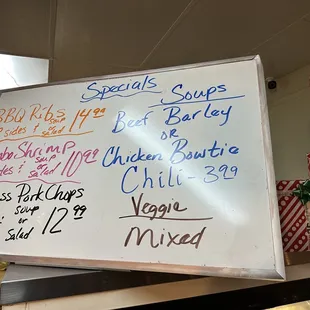 Specials
BBQ Ribs 14.99
sides & soup or salad
Shrimp 10.99
sides & soup or salad
Pork Chops 12.99
& soup or Salad
Soups
Beef Barley
OR
Chicken Bowtie
Chili - 3.99
Veggie
Mixed